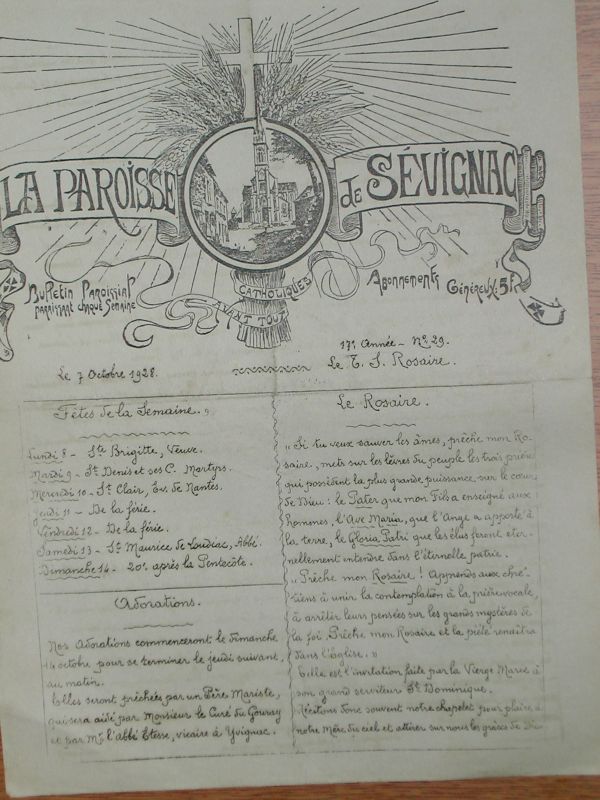 LA PAROISSE de SÉVIGNAC
Bulletin Paroissial
paraissant chaque Semaine
CATHOLIQUES
AVANT TOUT
Abonnements Généreux: 5f.
Le 7 Octobre 1928.
17e Année - No 29.
Le T. S. Rosaire.
Fêtes de la Semaine.
Lundi 8 - Ste Brigitte, Veuve.
Mardi 9 - St Denis et ses C. Martyrs.
Mercredi 10 - St Clair, Ev. de Nantes.
Jeudi 11 - De la férie.
Vendredi 12 - De la férie.
Samedi 13 - St Maurice de Loudéac, Abbé.
Dimanche 14 - 20e après la Pentecôte.
Adorations.
Nos Adorations commenceront le dimanche
14 octobre pour se terminer le jeudi suivant,
au matin.
Elles seront prêchées par un Père Mariste,
qui sera aidé par Monsieur le Curé du Gouray
et par Mr l'abbé Etesse, vicaire à Yvignac.
Le Rosaire.
"Si tu veux sauver les âmes, prêche mon Ro-
saire, mets sur les lèvres du peuple les trois prières
qui possèdent la plus grande puissance sur le cœur
de Dieu: le Pater que mon Fils a enseigné aux
hommes, l'Ave Maria, que l'Ange a apporté à
la terre, le Gloria Patri que les élus feront éter-
nellement entendre dans l'éternelle patrie.
"Prêche mon Rosaire! Apprends aux chré-
tiens à unir la contemplation à la prière vocale,
à arrêter leurs pensées sur les grands mystères de
la foi. Prêche mon Rosaire et la piété renaîtra
dans l'Église."
Telle est l'invitation faite par la Vierge Marie à
son grand serviteur St Dominique.
Récitons donc souvent notre chapelet pour plaire à
notre Mère du ciel et attirer sur nous les grâces de Dieu